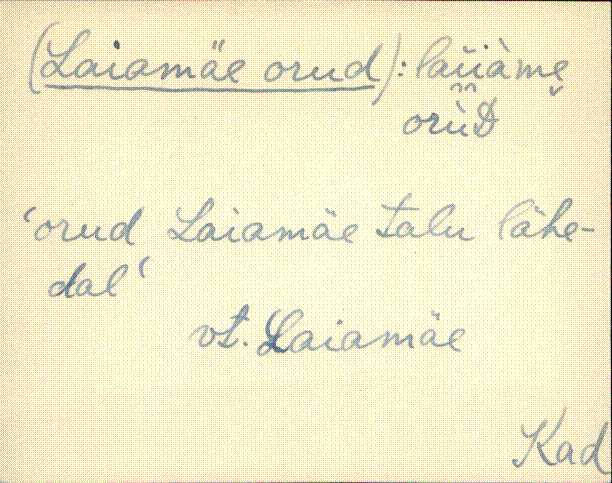 (Laiamäe orud): laiiàme
orùD
‘orud Laiamäe talu lähe-
dal‘
vt. Laiamäe
Kad